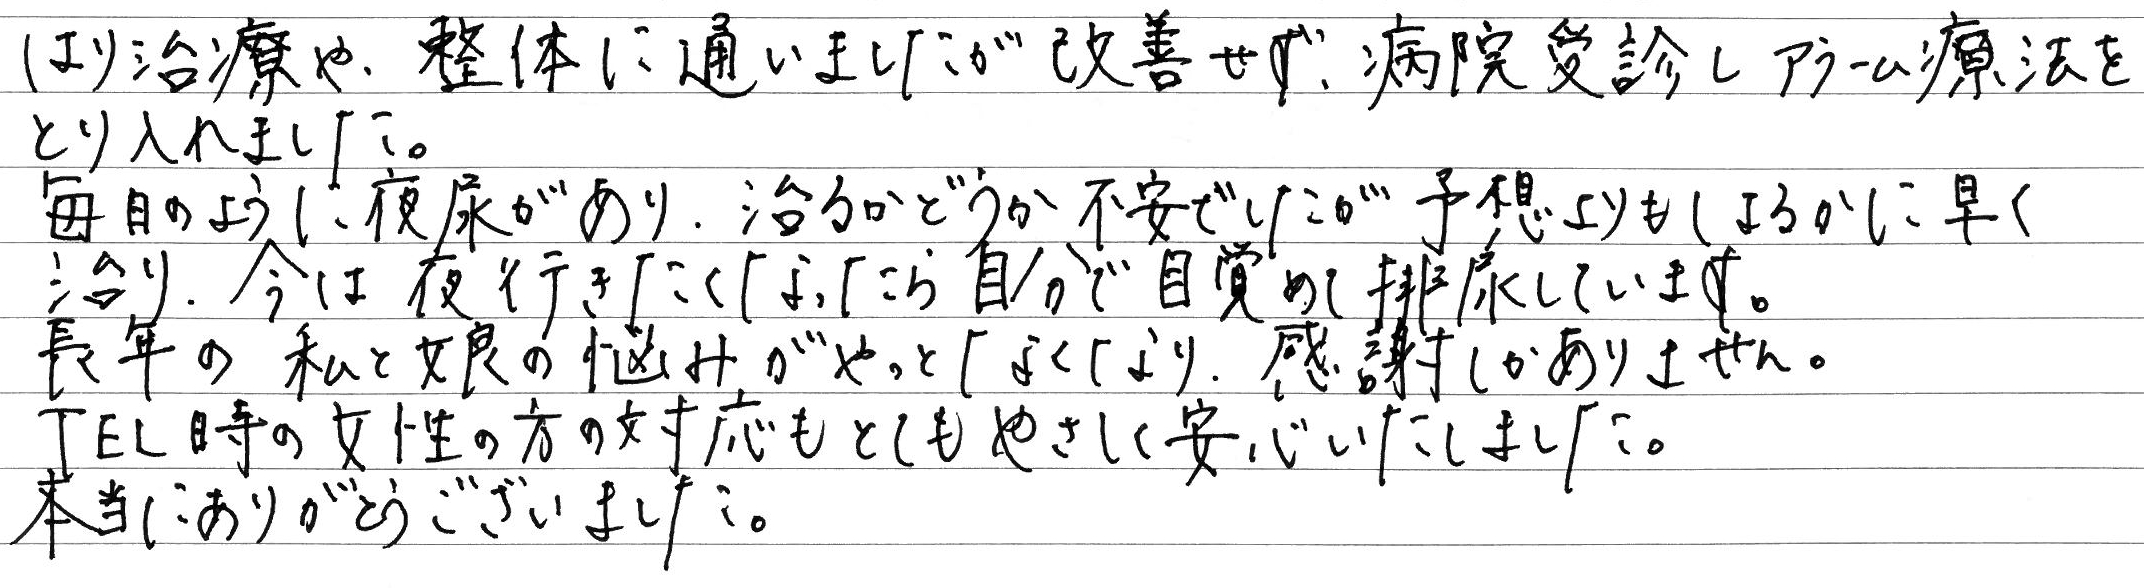 はり治療や、整体に通いましたが改善せず、病院受診しアラーム療法を
とり入れました。
毎日のように夜尿があり、治るかどうか不安でしたが予想よりもはるかに早く
治り、今は夜行きたくなったら自分で目覚めて排尿しています。
長年の私と娘の悩みがやっとなくなり、感謝しかありません。
TEL時の女性の方の対応もとてもやさしく安心いたしました。
本当にありがとうございました。